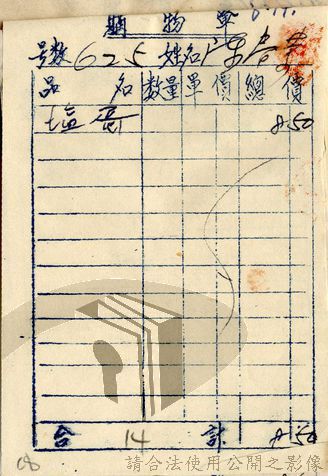 購物單 8.19.
号数 625 姓名
品名 数量 單價 總價
塩蛋 8.50
合 14 計 8.50
08
請合法使用公開之影像